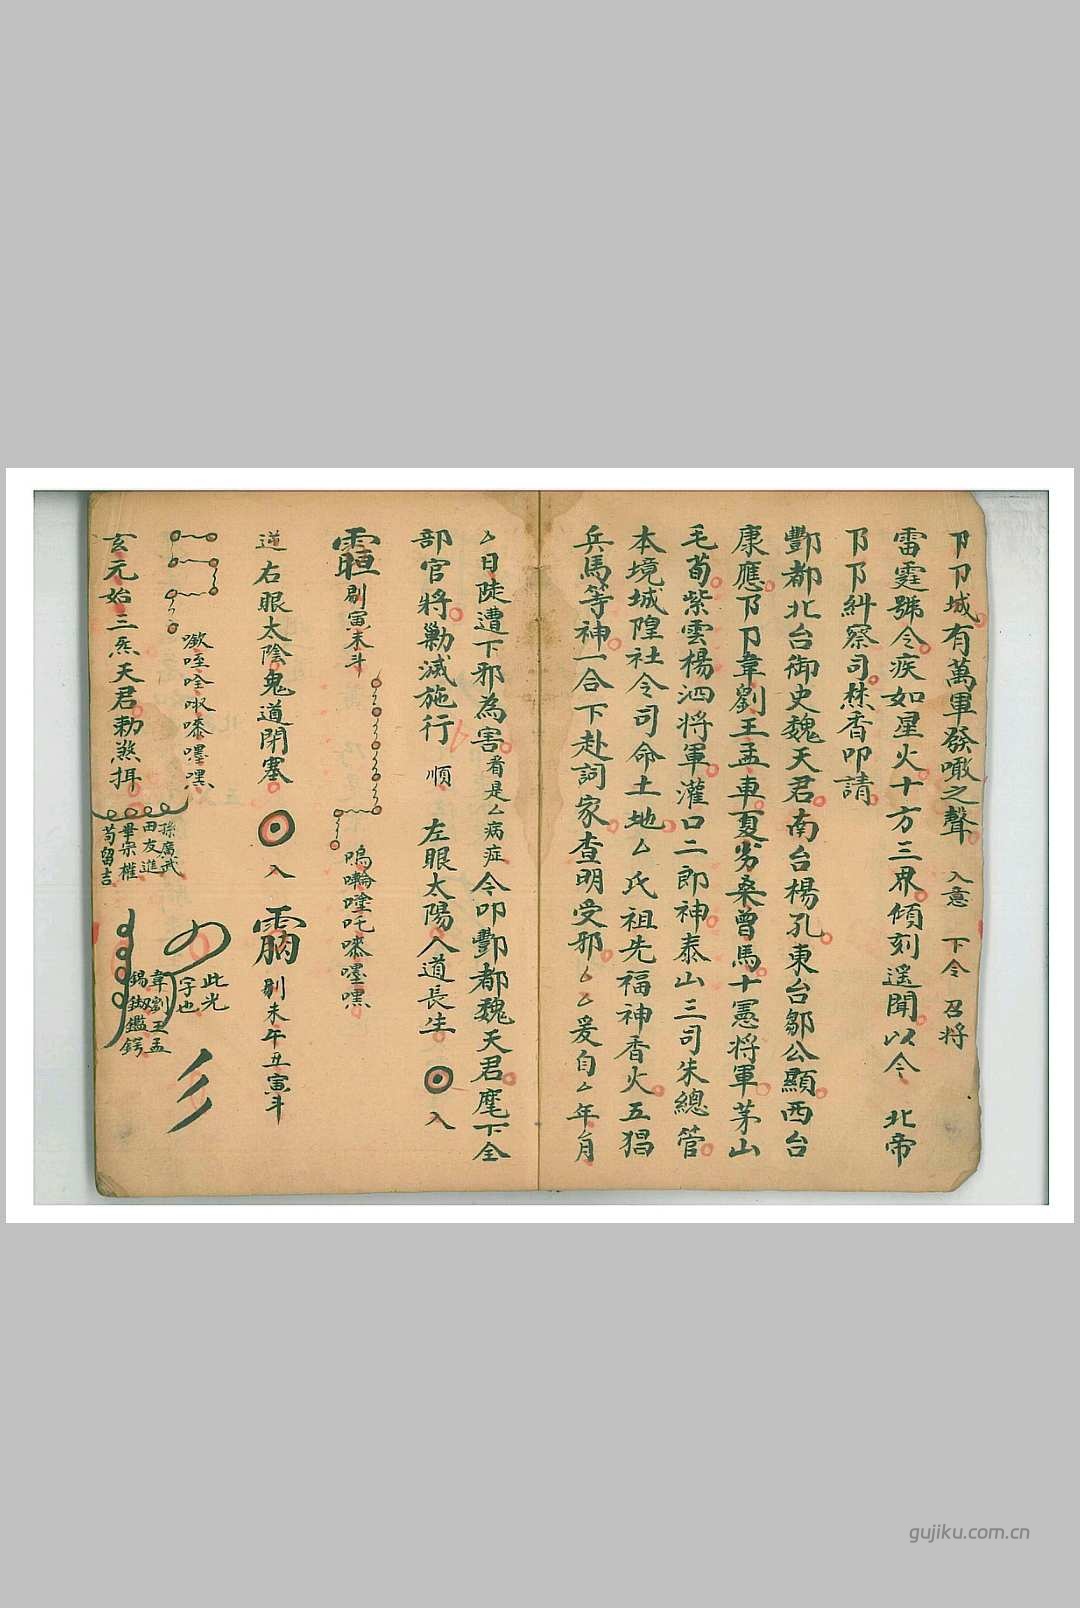 卩卩城有萬軍發噉之聲 入意 下令 召將
雷霆號令疾如星火十方三界傾刻遥聞以令 北帝
卩卩糾察司焚香叩請
酆都北台御史魏天君南台楊孔東台鄒公顯西台
康應卩卩韋劉王孟車夏劣桑曾馬十憲將軍茅山
毛荀紫雲楊泗將軍灌口二郎神泰山三司朱總管
本境城隍社令司命土地厶氏祖先福神香火五猖
兵馬等神一合下赴詞家查明受邪厶厶爰自厶年月
厶日陡遭下邪為害看是厶病症今叩酆都魏天君麾下全
部官將勦滅施行 順 左眼太陽人道長生 入
剔寅未斗
嘿
道右眼太陰鬼道閉塞 入
剔未午丑寅斗
嘿
此光
字也
玄元始三炁天君勅煞揖
孫廣武
田友進
畢宗權
苟留吉
韋劉王孟
gujiku.com.cn